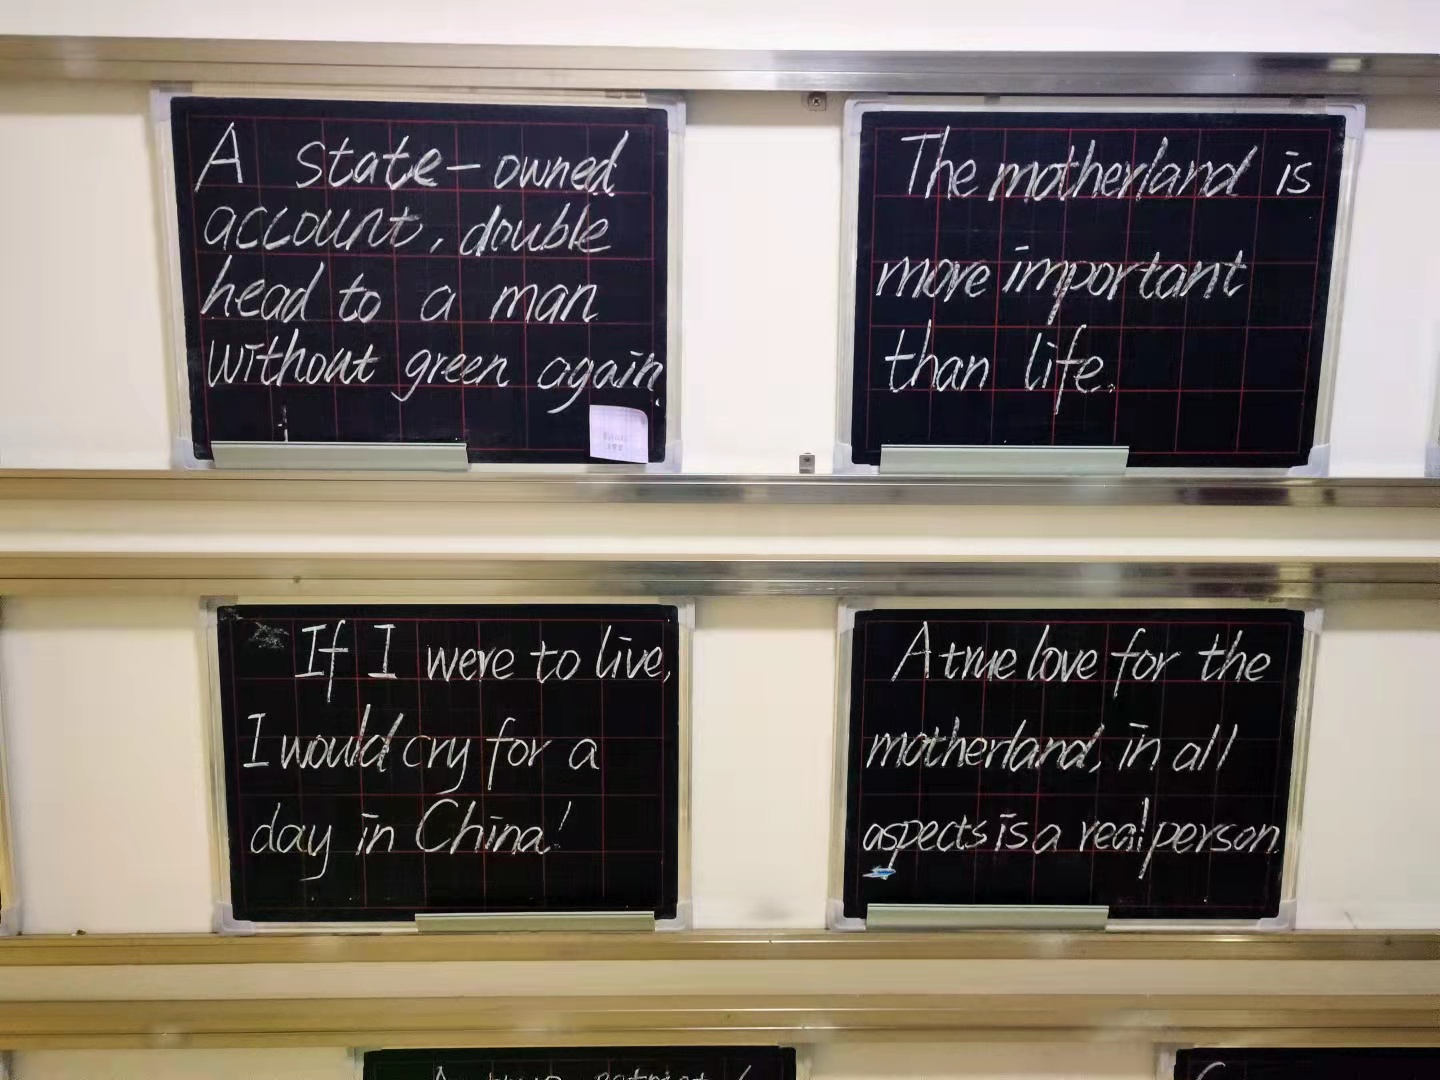 A state-owned
account, double
head to a man
without green again.
The motherland is
more important
than life.
If I were to live,
I would cry for a
day in China!
A true love for the
motherland, in all
aspects is a real person.